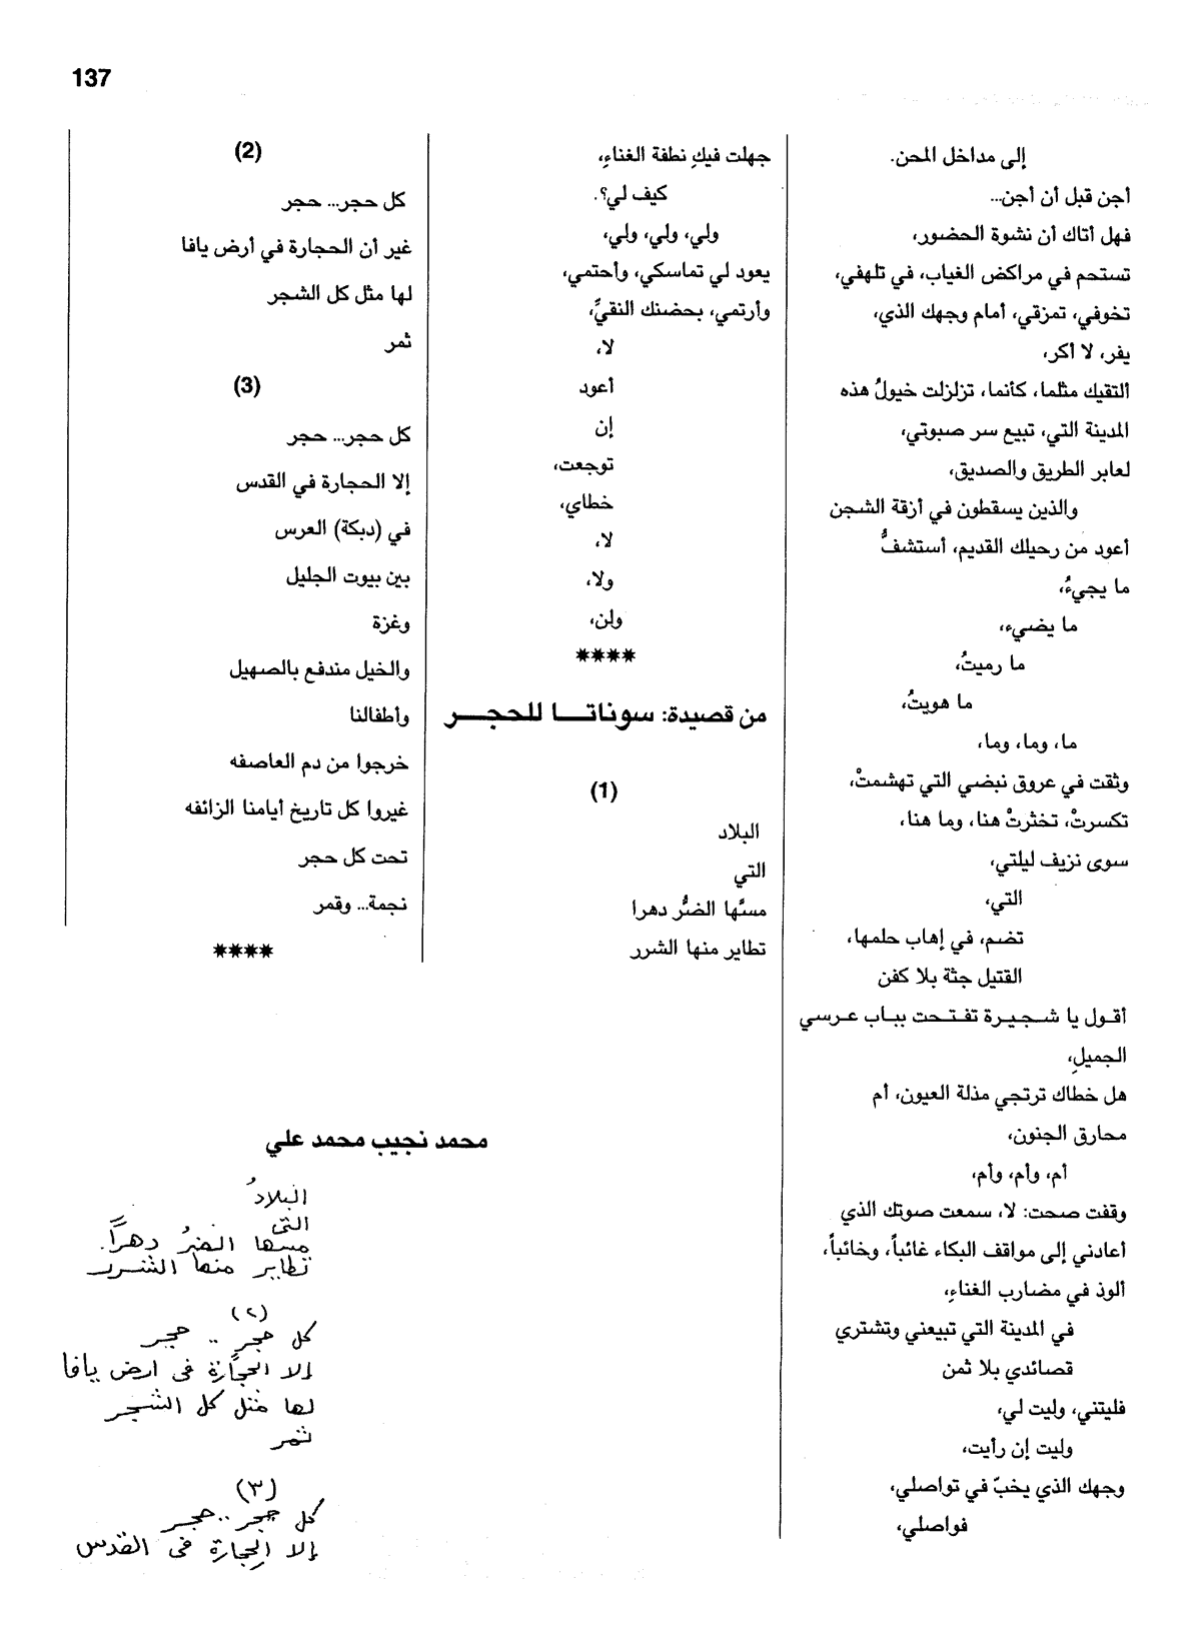 137
إلى مداخل المحن.
أجن قبل أن أجن...
فهل أتاك أن نشوة الحضور،
تستحم في مراكض الغياب، في تلهفي،
تخوفي، تمزقي، أمام وجهك الذي،
يفر، لا أكر،
ألتقيك مثلما، كأنما، تزلزلت خيولُ هذه
المدينة التي، تبيع سر صبوتي،
لعابر الطريق والصديق،
والذين يسقطون في أزقة الشجن
أعود من رحيلك القديم، أستشفُّ
ما يجيءُ،
ما يضيء،
ما رميتُ،
ما هويتُ،
ما، وما، وما،
وثقت في عروق نبضي التي تهشمتْ،
تكسرتْ، تخثرتْ هنا، وما هنا،
سوى نزيف ليلتي،
التي،
تضم، في إهاب حلمها،
القتيل جثة بلا كفن
أقول يا شجيرة تفتحت بباب عرسي
الجميلِ،
هل خطاك ترتجي مذلة العيون، أم
محارق الجنون،
أم، وأم، وأم،
وقفت صحت: لا، سمعت صوتك الذي
أعادني إلى مواقف البكاء غائباً، وخائباً،
ألوذ في مضارب الغناءِ،
في المدينة التي تبيعني وتشتري
قصائدي بلا ثمن
فليتني، وليت لي،
وليت إن رأيت،
وجهك الذي يخبّ في تواصلي،
فواصلي،
جهلت فيكِ نطفة الغناءِ،
كيف لي؟.
ولي، ولي، ولي،
يعود لي تماسكي، وأحتمي،
وأرتمي، بحضنك النقيِّ،
لا،
أعود
إن
توجعت،
خطاي،
لا،
ولا،
ولن،
****
من قصيدة: سوناتا للحجر
(1)
البلاد
التي
مسَّها الضرُّ دهرا
تطاير منها الشرر
(2)
كل حجر... حجر
غير أن الحجارة في أرض يافا
لها مثل كل الشجر
ثمر
(3)
كل حجر... حجر
إلا الحجارة في القدس
في (دبكة) العرس
بين بيوت الجليل
وغزة
والخيل مندفع بالصهيل
وأطفالنا
خرجوا من دم العاصفه
غيروا كل تاريخ أيامنا الزائفه
تحت كل حجر
نجمة... وقمر
****
محمد نجيب محمد علي
البلادُ
التى
مسها الضرُ دهراً.
تطاير منها الشرر
(٢)
كل حجر .. حجر
إلا الحجارة فى ارض يافا
لها مثل كل الشجر
ثمر
(٣)
كل حجر .. حجر
إلا الحِجارة فى القدس